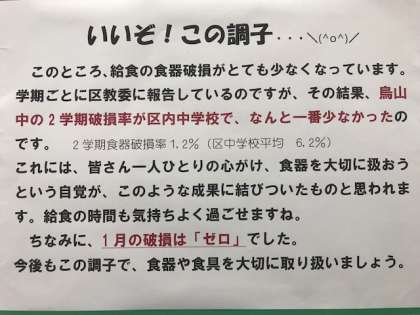 いいぞ！この調子・・・＼(^o^)／
このところ、給食の食器破損がとても少なくなっています。
学期ごとに区教委に報告しているのですが、その結果、烏山
中の２学期破損率が区内中学校で、なんと一番少なかったの
です。　２学期食器破損率１.２％（区中学校平均　６.２％）
これには、皆さん一人ひとりの心がけ、食器を大切に扱おう
という自覚が、このような成果に結びついたものと思われま
す。給食の時間も気持ちよく過ごせますね。
ちなみに、１月の破損は「ゼロ」でした。
今後もこの調子で、食器や食具を大切に取り扱いましょう。